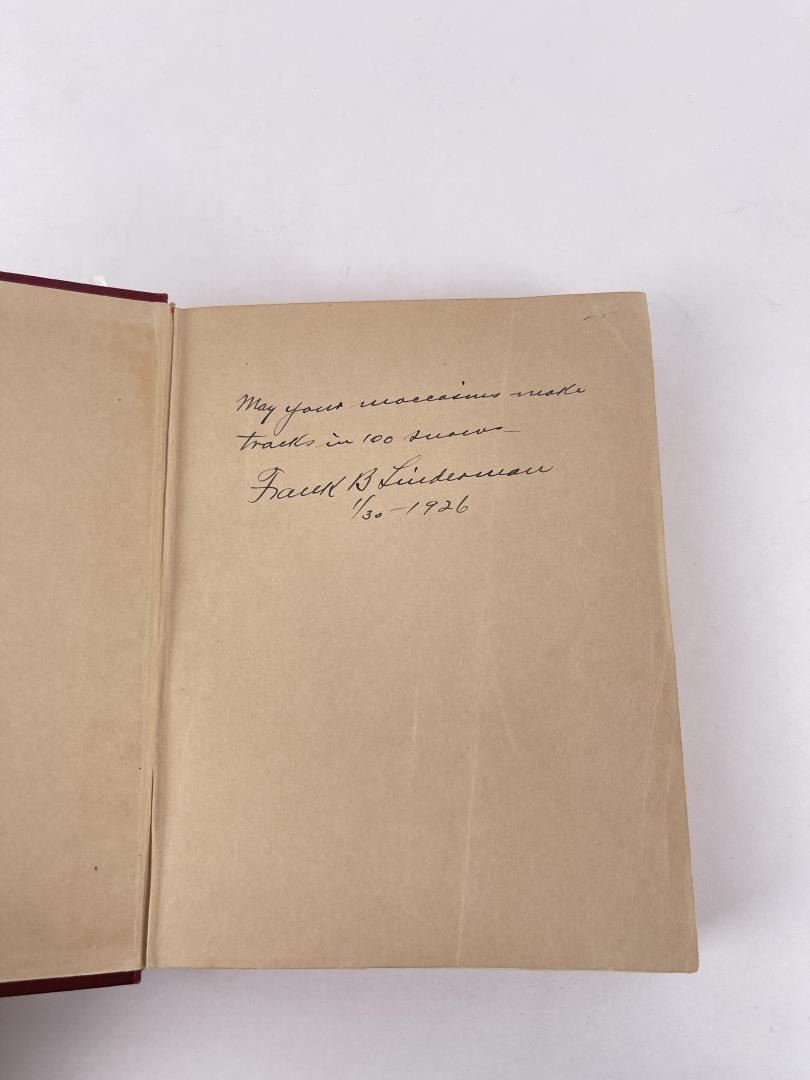 May your moccasins make
tracks in 100 snows—
Frank B Linderman
1/30-1926